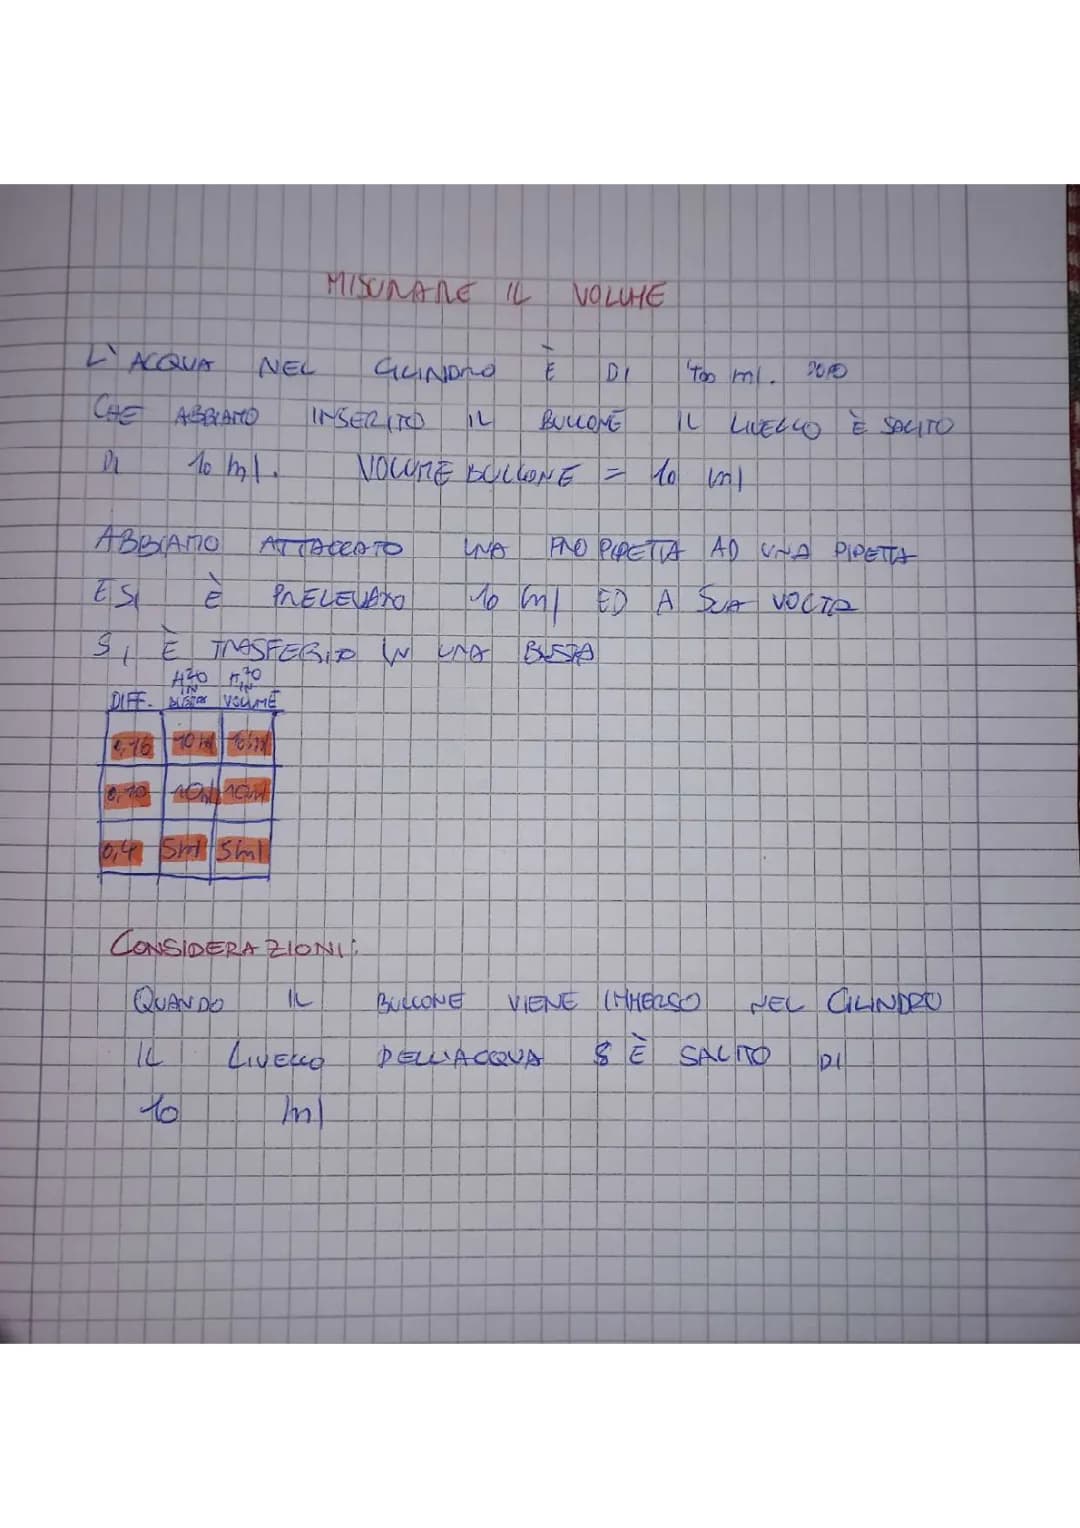 MISURARE IL VOLUME
L'ACQUA NEL CILINDRO È DI 400 ml. DOPO
CHE ABBIAMO INSERITO IL BULLONE IL LIVELLO È SALITO
DI 10 ml. VOLUME BULLONE = 10 ml
ABBIAMO ATTACCATO UNA PROPIPETTA AD UNA PIPETTA
E SI È PRELEVATO 10 ml ED A SUA VOLTA
SI È TRASFERITO IN UNA
DIFF. H2O IN H2O IN VOLUME
0,76 10 ml 10 ml
0,70 10 ml 10 ml
0,4 5ml 5ml
CONSIDERAZIONI:
QUANDO IL BULLONE VIENE IMMERSO NEL CILINDRO
IL LIVELLO DELL'ACQUA È SALITO DI
10 ml